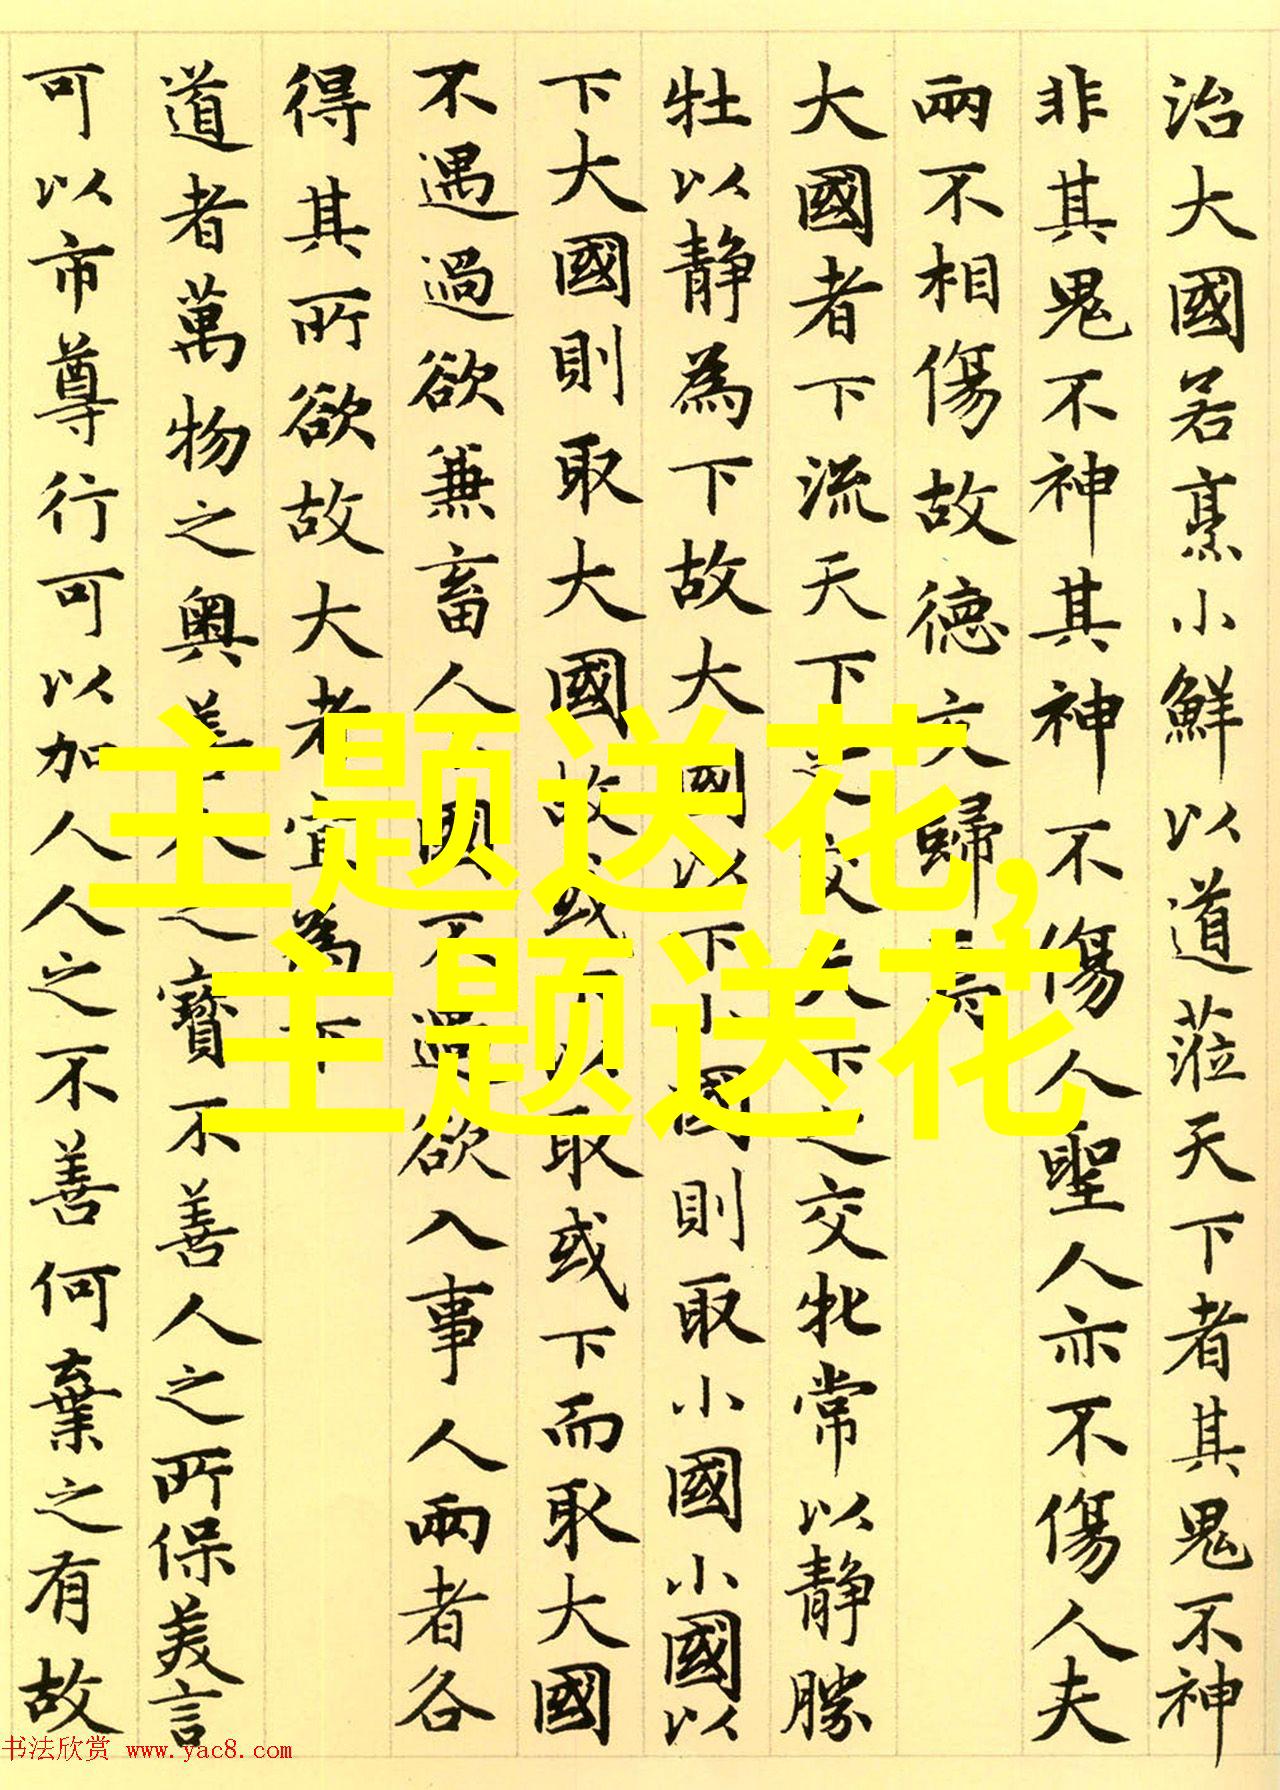 治大國若烹小鮮以道蒞天下者其鬼不神
非其鬼不神其神不傷人聖人亦不傷人夫
兩不相傷故德交歸焉
大國者下流天下之交天下之交牝常以静勝
牡以静為下故大國以下小國則取小國小國以
下大國則取大國故或下以取或下而取大國
不遇過欲兼畜人小國不過欲入事人兩者各
得其所欲故大者宜為下
道者萬物之奧善人之寶不善人之所保美言
可以市尊行可以加人人之不善何棄之有故
主题送花,
主题送花
书法欣赏 www.yac8.com